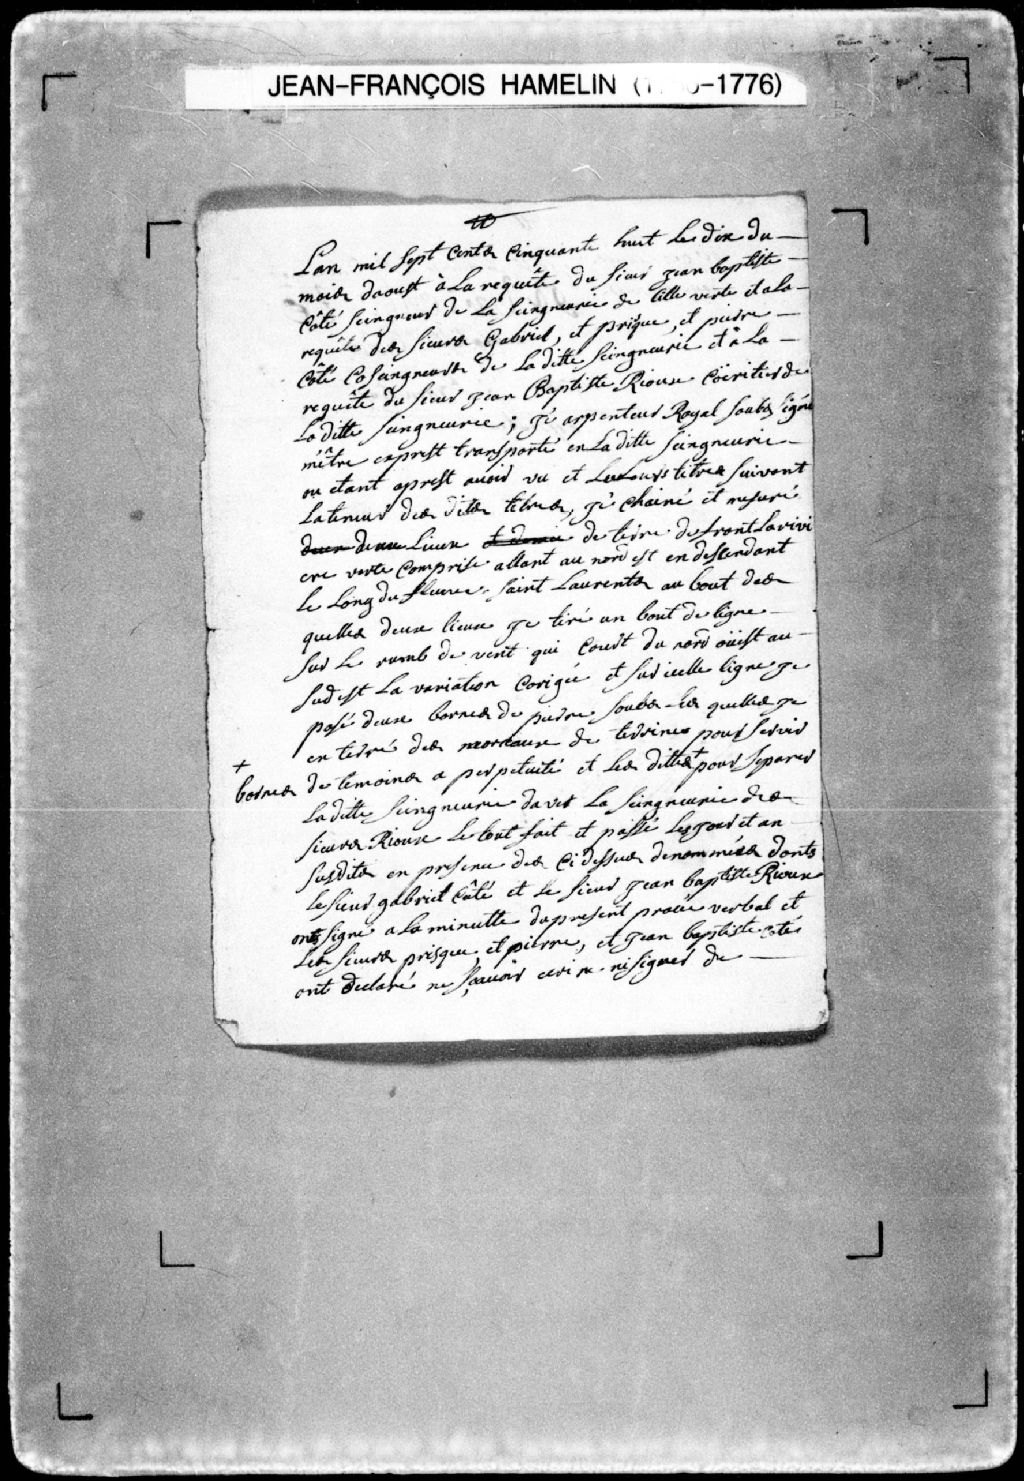 JEAN-FRANÇOIS HAMELIN (1 -1776)
Lan mil sept Cents Cinquante huit Le dix du
mois daoust à La requête du sieur Jean baptiste
Côté seingneur de La seingneurie de lille verte et a La
requête des sieurs Gabriel, et prisque, et pierre
Côté Coseingneurs de La ditte seingneurie et à La
requête du sieur Jean Baptiste Rioux Coëritier de
La ditte seingneurie; Je arpenteur Royal soubs signé
mêtre exprest transporté en La ditte seingneurie
ou etant aprest avoir vu et Leu Leurs titres suivant
La teneur des dites titres, J'é chainé et mesuré
deux Lieux et demie de terre de front La rivi
ere verte Comprise allant au nord est en desendant
Le Long du fleuve saint Laurents au bout des
quelles deux lieux Jé tiré un bout de ligne
sur Le rumb de vent qui Court du nord oüest au
sud est La variation Corigée et sur icelle ligne Jé
posé deux bornes de pierre soubs les quelles Jé
en terré des morceaux de terrines pour servir
+
bornes de temoins a perpetuité et Les dittes + pour separer
La ditte seingneurie davec La seingneurie des
sieurs Rioux Le tout fait et passé Les jour et an
susdits en presence des Ci dessus denommées donts
Le sieur gabriel Côté et Le sieur Jean baptiste Rioux
onts signé a La minutte du present procès verbal et
Les sieurs prisque, et pierre, et Jean baptiste côté
ont declaré ne sçavoir ecrire ni signer de